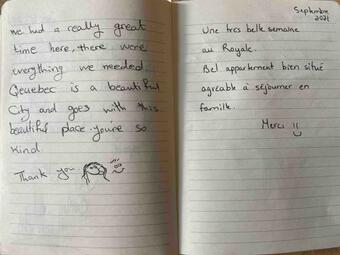 we had a really great
time here, there were
everything we needed.
Qeuebec is a beautiful
City and goes with this
beautiful place. youre so
kind.
Thank you
Septembre
2021
Une tres belle semaine
au Royale.
Bel appartement bien situé
agréable à séjourner en
famille.
Merci !!